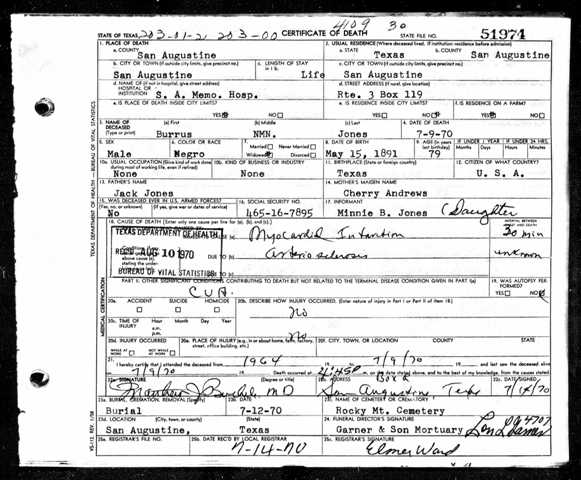 4109 30
STATE OF TEXAS 203-01-2 203-00 CERTIFICATE OF DEATH STATE FILE NO. 51974
1. PLACE OF DEATH 2. USUAL RESIDENCE (Where deceased lived. If institution: residence before admission)
a. COUNTY a. STATE b. COUNTY
San Augustine Texas San Augustine
b. CITY OR TOWN (If outside city limits, give precinct no.) c. LENGTH OF STAY in 1 b. c. CITY OR TOWN (If outside city limits, give precinct no.)
San Augustine Life San Augustine
d. NAME OF (If not in hospital, give street address) HOSPITAL OR INSTITUTION d. STREET ADDRESS (If rural, give location)
S. A. Memo. Hosp. Rte. 3 Box 119
e. IS PLACE OF DEATH INSIDE CITY LIMITS? e. IS RESIDENCE INSIDE CITY LIMITS? f. IS RESIDENCE ON A FARM?
YES NO YES NO YES NO
3. NAME OF DECEASED (Type or print) (a) First (b) Middle (c) Last 4. DATE OF DEATH
Burrus NMN. Jones 7-9-70
5. SEX 6. COLOR OR RACE 7. Married Never Married Widowed Divorced 8. DATE OF BIRTH 9. AGE (In years last birthday) IF UNDER 1 YEAR Months Days IF UNDER 24 HRS. Hours Minutes
Male Negro May 15, 1891 79
10a. USUAL OCCUPATION (Give kind of work done during most of working life, even if retired) 10b. KIND OF BUSINESS OR INDUSTRY 11. BIRTHPLACE (State or foreign country) 12. CITIZEN OF WHAT COUNTRY?
None None Texas U. S. A.
13. FATHER'S NAME 14. MOTHER'S MAIDEN NAME
Jack Jones Cherry Andrews
15. WAS DECEASED EVER IN U.S. ARMED FORCES? (Yes, no, or unknown) (If yes, give war or dates of service) 16. SOCIAL SECURITY NO. 17. INFORMANT
No 465-16-7895 Minnie B. Jones (Daughter
18. CAUSE OF DEATH (Enter only one cause per line for (a), (b), and (c).) INTERVAL BETWEEN ONSET AND DEATH
TEXAS DEPARTMENT OF HEALTH
REC'D AUG 10 1970
BUREAU OF VITAL STATISTICS
Myocardial 30 min
DUE TO (b) unknown
PART II. OTHER SIGNIFICANT CONDITIONS CONTRIBUTING TO DEATH BUT NOT RELATED TO THE TERMINAL DISEASE CONDITION GIVEN IN PART I(a) 19. WAS AUTOPSY PERFORMED?
CVA YES NO
20a. ACCIDENT SUICIDE HOMICIDE 20b. DESCRIBE HOW INJURY OCCURRED. (Enter nature of injury in Part I or Part II of item 18.)
No
20c. TIME OF INJURY Hour Month Day Year a.m. p.m.
20d. INJURY OCCURRED WHILE AT WORK NOT WHILE AT WORK 20e. PLACE OF INJURY (e.g., in or about home, farm, factory, street, office building, etc.) 20f. CITY, TOWN, OR LOCATION COUNTY STATE
No
21. I hereby certify that I attended the deceased from 1964 19 to 7/9/70 19 and last saw the deceased alive
7/9/70 19 Death occurred at 4:45P m. on the date stated above, and to the best of my knowledge, from the causes stated.
22a. SIGNATURE (Degree or title) 22b. ADDRESS 22c. DATE SIGNED
M D Box 6 San Augustine, Texas
23a. BURIAL, CREMATION, REMOVAL (Specify) 23b. DATE 23c. NAME OF CEMETERY OR CREMATORY
Burial 7-12-70 Rocky Mt. Cemetery
23d. LOCATION (City, town, or county) (State) 24. FUNERAL DIRECTOR'S SIGNATURE
San Augustine, Texas Garner & Son Mortuary 4707
25a. REGISTRAR'S FILE NO. 25b. DATE REC'D BY LOCAL REGISTRAR 25c. REGISTRAR'S SIGNATURE
7-14-70 Elmer Ward
TEXAS DEPARTMENT OF HEALTH - BUREAU OF VITAL STATISTICS
MEDICAL CERTIFICATION